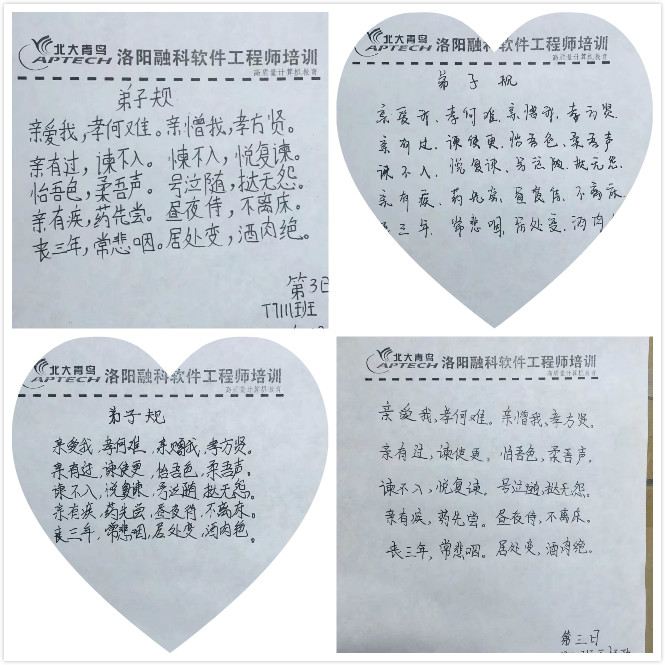 北大青鸟
APTECH 洛阳融科软件工程师培训
高质量计算机教育
弟子规
亲爱我，孝何难。亲憎我，孝方贤。
亲有过，谏不入。谏不入，悦复谏。
怡吾色，柔吾声。号泣随，挞无怨。
亲有疾，药先尝。昼夜侍，不离床。
丧三年，常悲咽。居处变，酒肉绝。
第3日
T7111班
北大青鸟
APTECH 洛阳融科软件工程师培训
高质量计算机教育
弟子规
亲爱我，孝何难，亲憎我，孝方贤．
亲有过，谏使更，怡吾色，柔吾声
谏不入，悦复谏，号泣随，挞无怨．
亲有疾，药先尝，昼夜侍，不离床．
丧三年，常悲咽，居处变，酒肉
北大青鸟
APTECH 洛阳融科软件工程师培训
高质量计算机教育
弟子规
亲爱我，孝何难，亲憎我，孝方贤。
亲有过，谏使更，怡吾色，柔吾声。
谏不入，悦复谏，号泣随，挞无怨。
亲有疾，药先尝，昼夜侍，不离床。
丧三年，常悲咽，居处变，酒肉绝。
北大青鸟
APTECH 洛阳融科软件工程师培训
高质量计算机教育
亲爱我，孝何难。亲憎我，孝方贤。
亲有过，谏使更。怡吾色，柔吾声，
谏不入，悦复谏，号泣随，挞无怨。
亲有疾，药先尝。昼夜侍，不离床。
丧三年，常悲咽。居处变，酒肉绝。
第三日